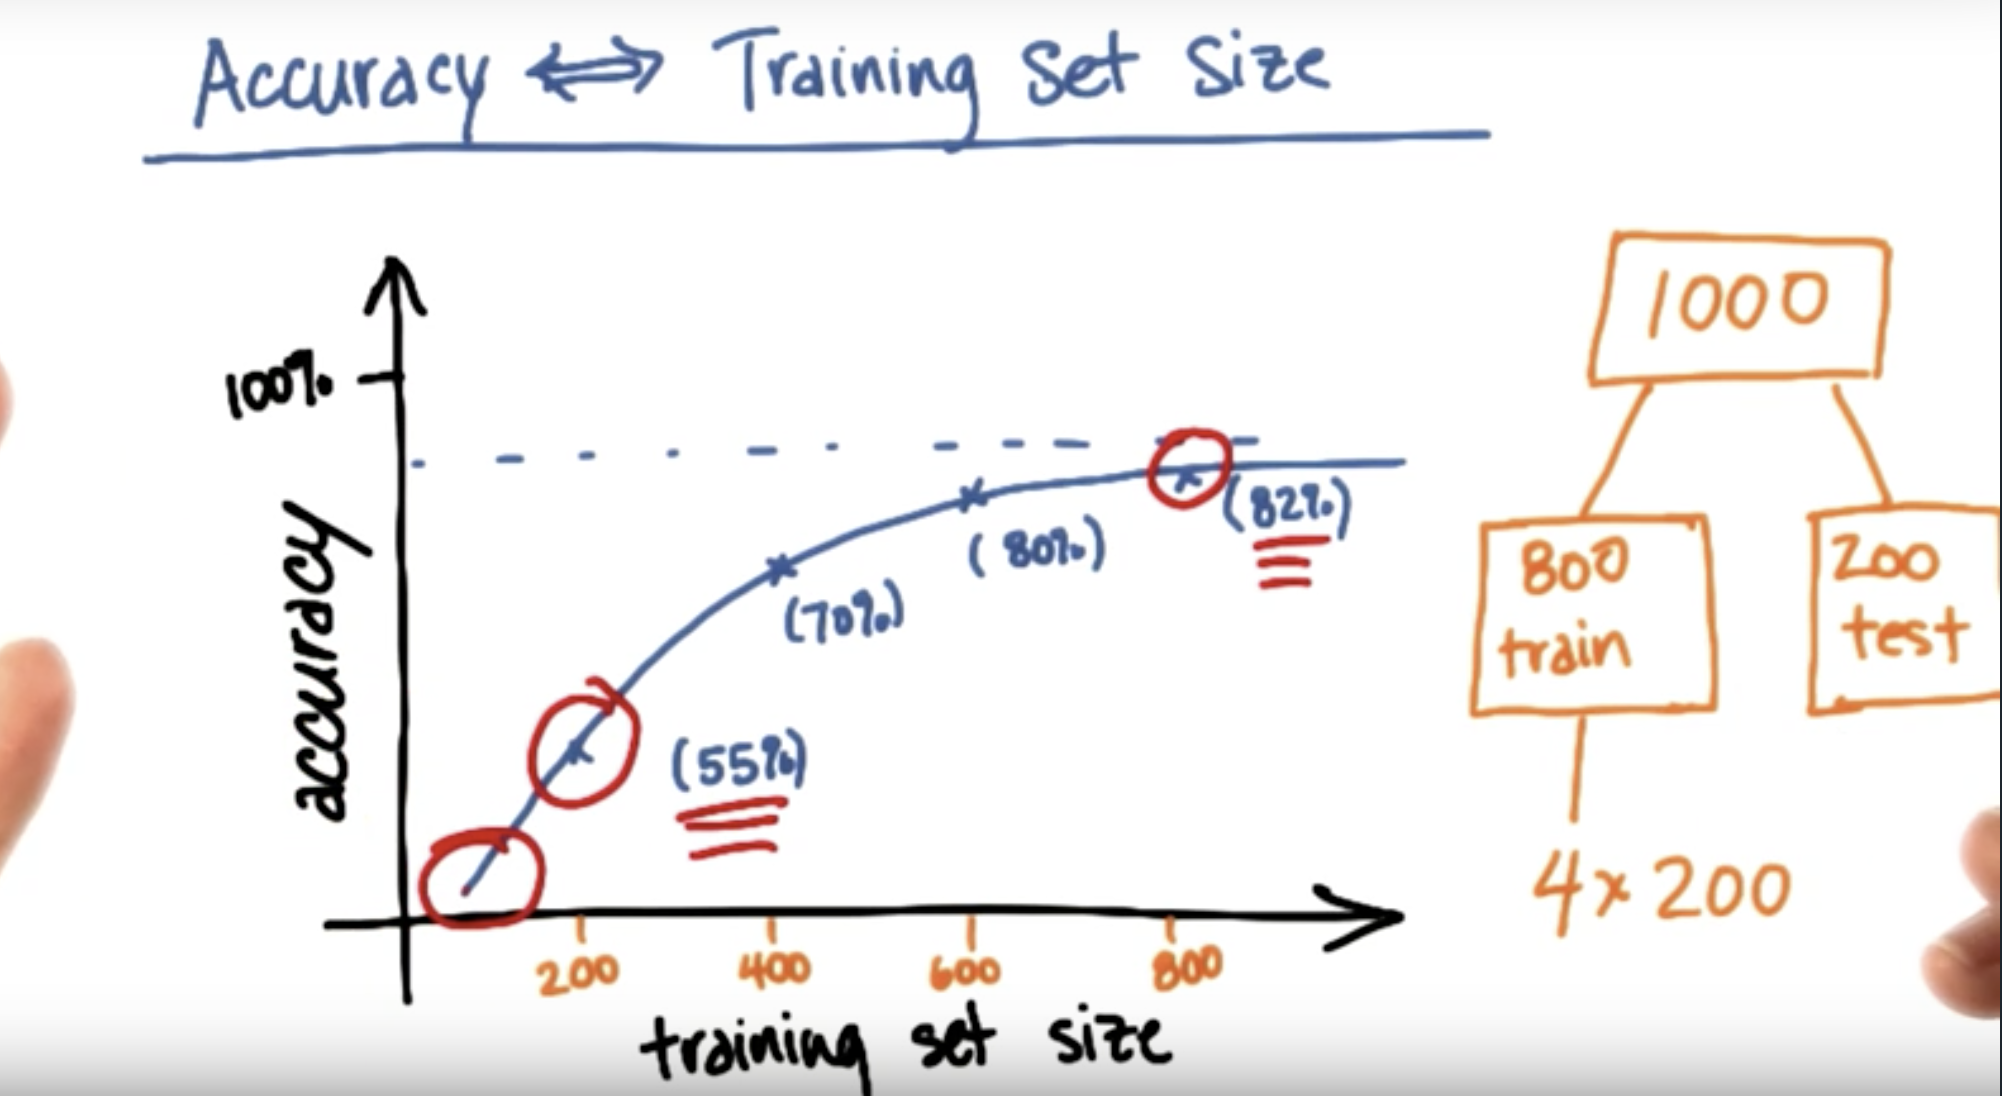 Accuracy ⟺ Training Set Size
100%
accuracy
(82%)
(80%)
(70%)
(55%)
200 400 600 800
training set size
1000
800
train
200
test
4x200